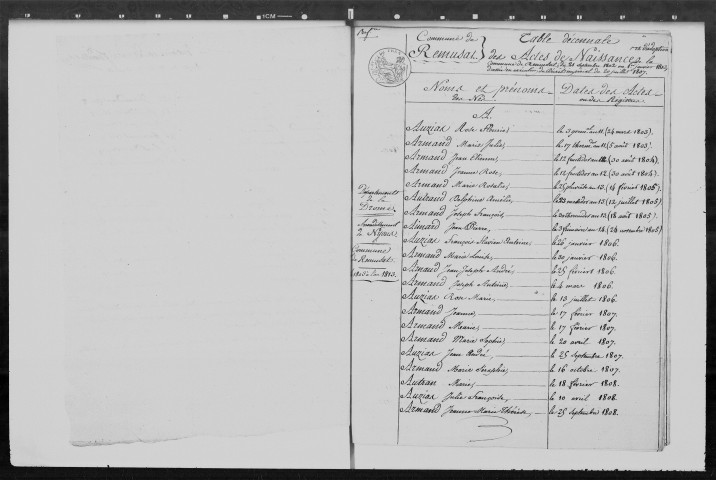 Commune de
Remusat
Table décennale
des Actes de Naissance
Commune de Remusat, du 23 septembre 1802 au 1er janvier 1813
Noms et prénoms
des Nés
Dates des Actes
ou des Registres
A.
Auzias Rose Fleurie le 3 germinal an 11 (24 mars 1803).
Armand Marie Julie le 17 thermidor an 11 (5 août 1803).
Armand Jean Etienne le 12 fructidor an 12 (30 août 1804).
Armand Jeanne Rose le 12 fructidor an 12 (30 août 1804).
Armand Marie Rosalie le 25 pluviôse an 13 (14 février 1805).
Autrand Delphine Amélie le 23 messidor an 13 (12 juillet 1805)
Armand Joseph François le 30 thermidor an 13 (18 août 1805).
Aimard Jean Pierre le 3 frimaire an 14 (24 novembre 1805)
Auzias François le 26 janvier 1806.
Armand Marie Louise le 30 janvier 1806.
Armand Jean Joseph André le 25 février 1806.
Armand Joseph Antoine le 4 mars 1806.
Auzias Rose Marie le 13 juillet 1806.
Armand Jeanne le 17 février 1807.
Armand Marie le 17 février 1807.
Armand Marie Sophie le 20 avril 1807.
Auzias Jean André le 25 septembre 1807.
Armand Marie Seraphie le 16 octobre 1807.
Autran Marie le 18 février 1808.
Auzias Julie Françoise le 10 avril 1808.
Armand Jeanne Marie Thérèse le 25 septembre 1808.
Département
de la
Drome
Arrondissement
de Nyons
Commune
de Remusat
1CM